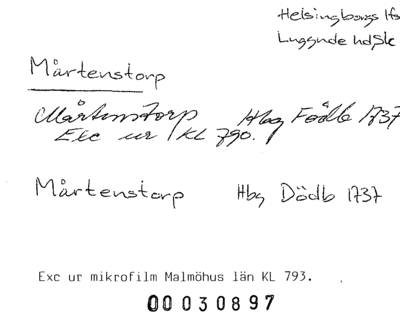 Helsingborgs lfs
Luggude hdSk
Mårtenstorp
Mårtenstorp Hbg Födlb 1737
Exc ur KL 790.
Mårtenstorp Hbg Dödb 1737
Exc ur mikrofilm Malmöhus län KL 793.
00030897